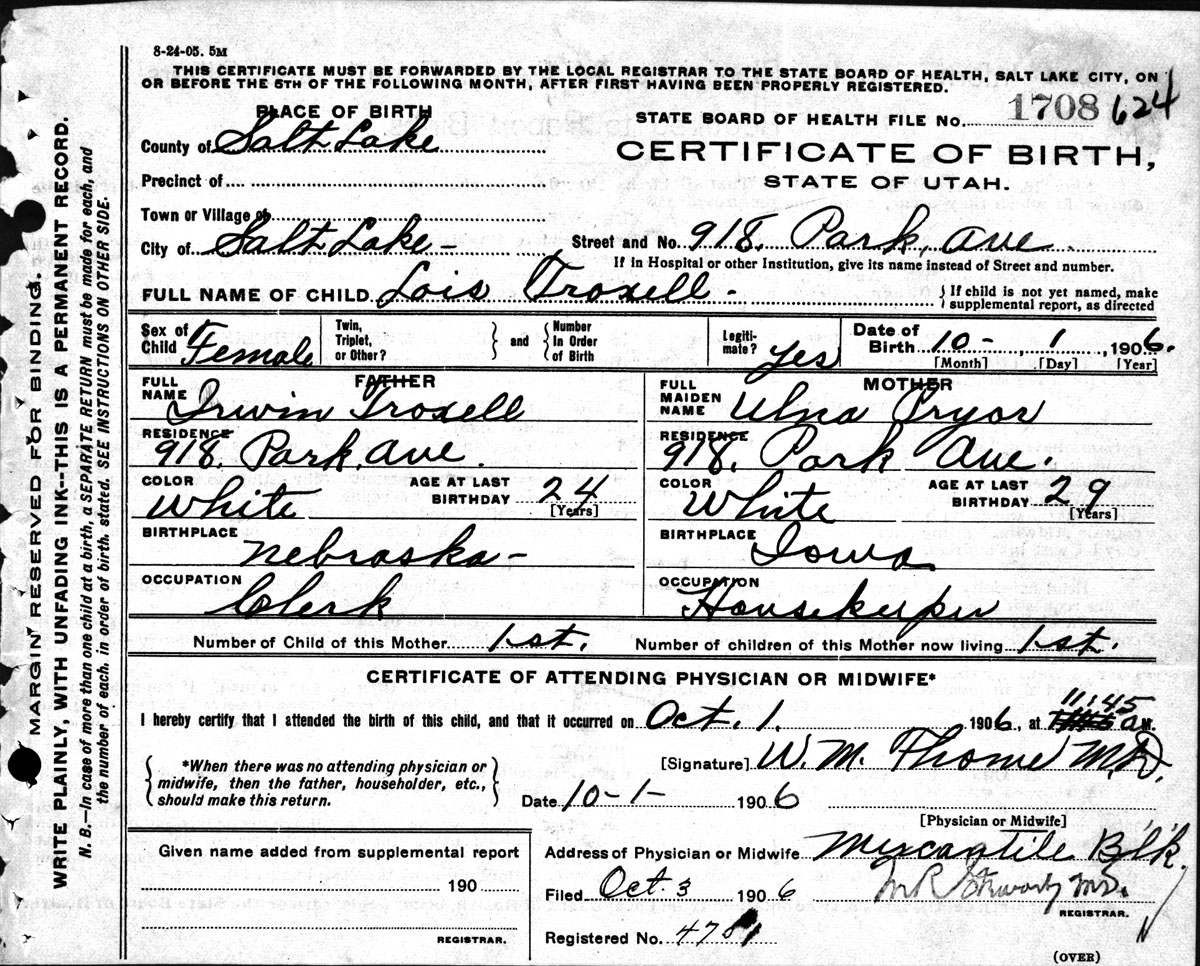 8-24-05. 5M
THIS CERTIFICATE MUST BE FORWARDED BY THE LOCAL REGISTRAR TO THE STATE BOARD OF HEALTH, SALT LAKE CITY, ON
OR BEFORE THE 5TH OF THE FOLLOWING MONTH, AFTER FIRST HAVING BEEN PROPERLY REGISTERED.
PLACE OF BIRTH
STATE BOARD OF HEALTH FILE No. 1708 624
County of Salt Lake
CERTIFICATE OF BIRTH,
STATE OF UTAH.
Precinct of
Town or Village of
City of Salt Lake - Street and No. 918. Park, Ave
If in Hospital or other Institution, give its name instead of Street and number.
FULL NAME OF CHILD Lois Troxell - { If child is not yet named, make
supplemental report, as directed
Sex of Child Female
Twin, Triplet, or Other? } and { Number In Order of Birth
Legiti-mate? Yes
Date of Birth 10 - , 1 , 1906.
[Month] [Day] [Year]
FATHER
FULL NAME Irwin Troxell
RESIDENCE 918. Park. Ave.
COLOR White AGE AT LAST BIRTHDAY 24 [Years]
BIRTHPLACE Nebraska -
OCCUPATION Clerk
MOTHER
FULL MAIDEN NAME Ulna Pryor
RESIDENCE 918. Park Ave.
COLOR White AGE AT LAST BIRTHDAY 29 [Years]
BIRTHPLACE Iowa
OCCUPATION Housekeeper
Number of Child of this Mother 1st. Number of children of this Mother now living 1st.
CERTIFICATE OF ATTENDING PHYSICIAN OR MIDWIFE*
I hereby certify that I attended the birth of this child, and that it occurred on Oct. 1. 1906, at 11.45 a M.
*When there was no attending physician or
midwife, then the father, householder, etc.,
should make this return.
[Signature] W. M. Thome M.D.
Date 10-1- 1906
[Physician or Midwife]
Given name added from supplemental report
190
REGISTRAR.
Address of Physician or Midwife Mercantile Blk.
Filed Oct. 3 1906 M.D.
REGISTRAR.
Registered No. 4751
(OVER)
MARGIN RESERVED FOR BINDING.
WRITE PLAINLY, WITH UNFADING INK--THIS IS A PERMANENT RECORD.
N. B.—In case of more than one child at a birth, a SEPARATE RETURN must be made for each, and
the number of each, in order of birth, stated. SEE INSTRUCTIONS ON OTHER SIDE.